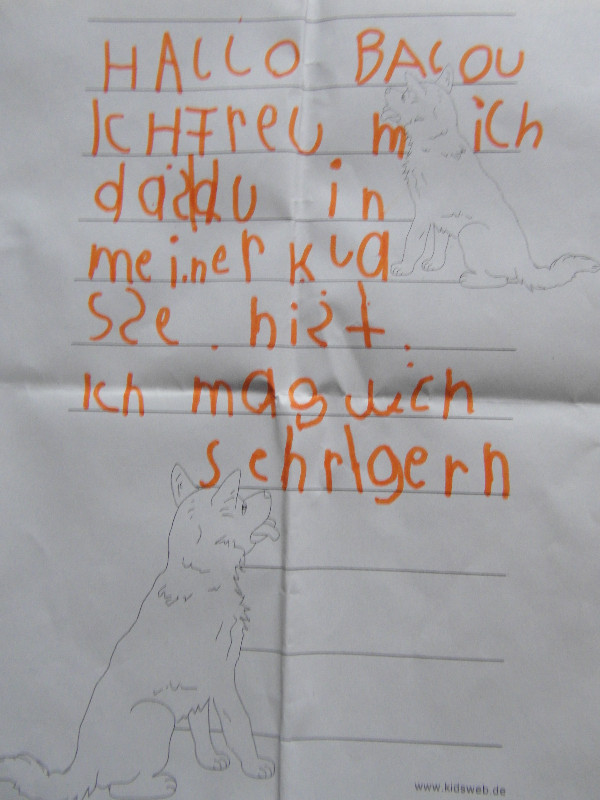 HALLO BALOU
ICH FreU mich
dasdu in
meiner kla
sse. hist.
Ich mag dich
sehr gern
www.kidsweb.de